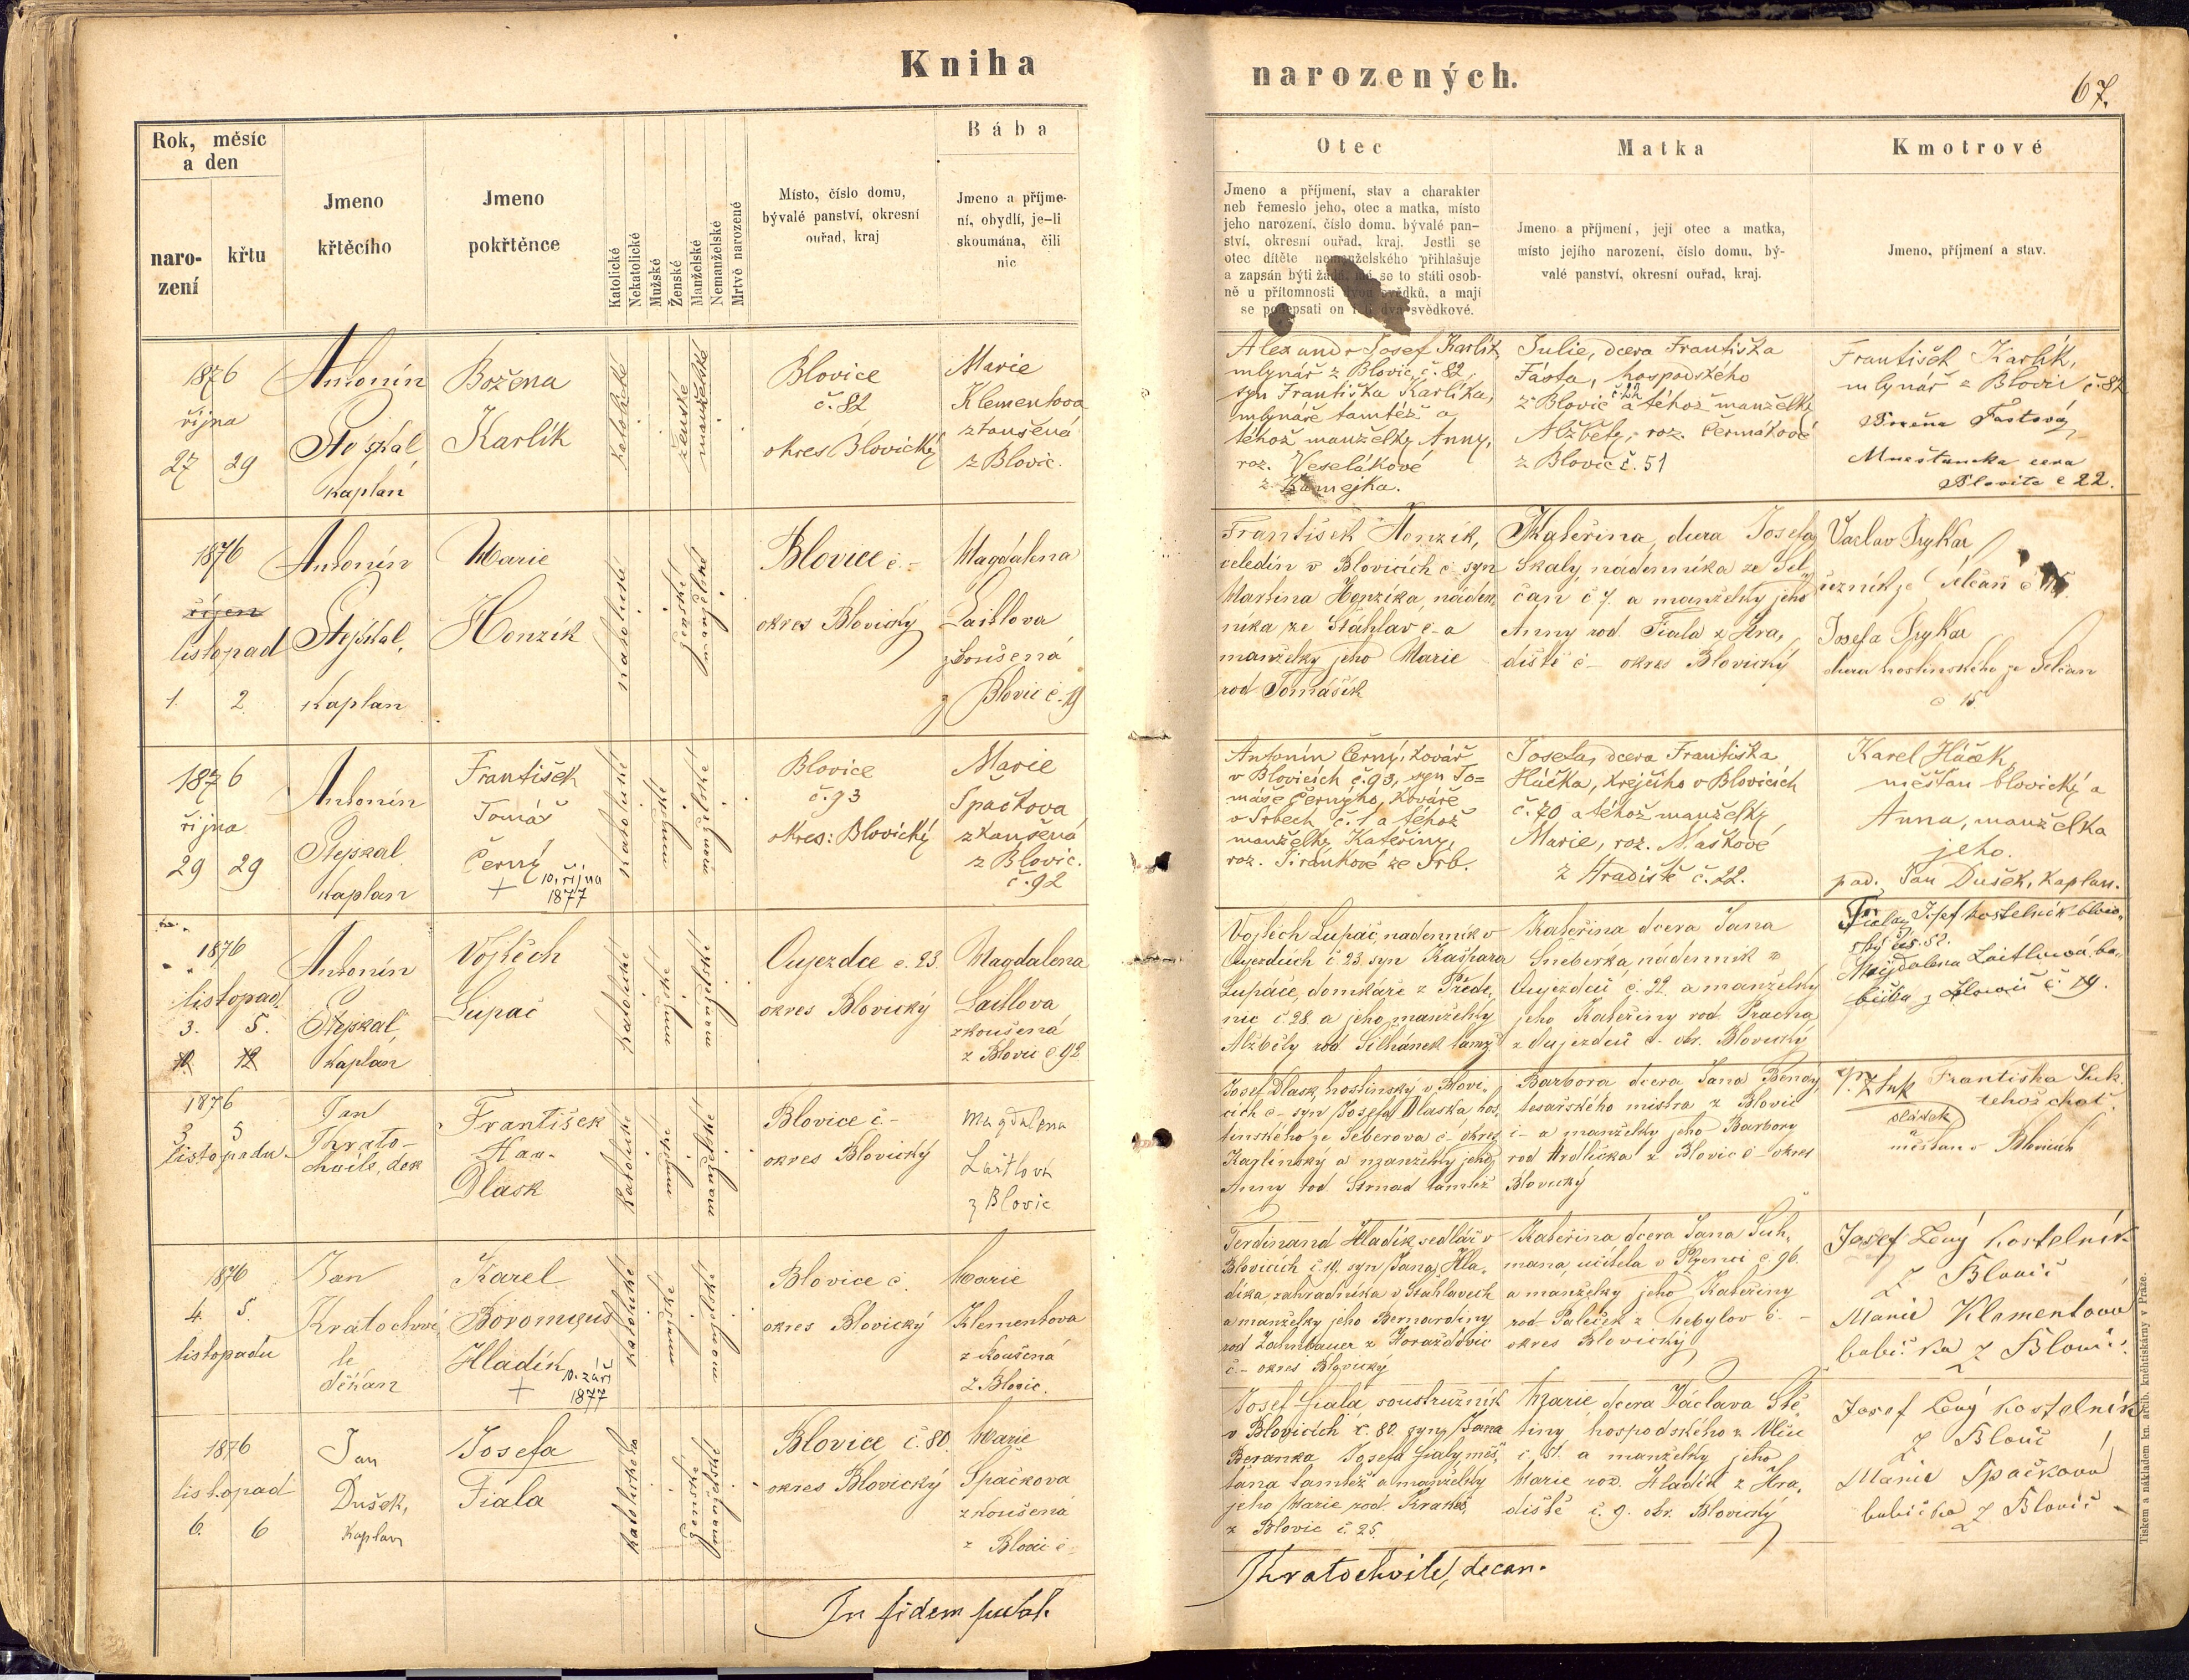 Kniha
narozených.
67.
Rok, měsíc
a den
naro-
zení
křtu
Jmeno
křtěcího
Jmeno
pokřtěnce
Katolické
Nekatolické
Mužské
Ženské
Manželské
Nemanželské
Mrtvě narozené
Místo, číslo domu,
bývalé panství, okresní
ouřad, kraj
Bába
Jmeno a příjme-
ní, obydlí, je-li
skoumána, čili
nic
Otec
Jmeno a příjmení, stav a charakter
neb řemeslo jeho, otec a matka, místo
jeho narození, číslo domu, bývalé pan-
ství, okresní ouřad, kraj. Jestli se
otec dítěte nemanželského přihlašuje
a zapsán býti žádá, má se to státi osob-
ně u přítomnosti dvou svědků, a mají
se podepsati on i ti dva svědkové.
Matka
Jmeno a příjmení, její otec a matka,
místo jejího narození, číslo domu, bý-
valé panství, okresní ouřad, kraj.
Kmotrové
Jmeno, příjmení a stav.
1876
října
27 29
Antonín
kaplan
Božena
Karlík
katolické
ženské
manželské
Blovice
č. 82
okres Blovický
Marie
Klementova
zkoušená
z Blovic.
Josef Karlík
mlynář z Blovic č. 82,
syn Františka Karlíka,
mlynáře tamtéž a
téhož manželky Anny,
roz. Veselákové
z Kamejka.
Julie, dcera Františka
Fásta, hospodského
z Blovic č 22 a téhož manželky
Alžběty, roz. Čermákové
z Blovic č. 51
František Karlík,
mlynář z Blovic č. 82
Fastová
č 22.
1876
říjen
listopad
1. 2.
Antonín
Stejskal,
kaplan
Marie
Honzík
katolické
ženské
manželské
Blovice č. -
okres Blovický
Magdalena
Laitlova
zkoušená
z Blovic č. 19
František Honzík,
čeledín v Blovicích č syn
Martina Honzíka, náden,
níka ze Šťahlav č - a
manželky jeho Marie
rod Tomášík
Kateřina, dcera Josefa
Skaly, nádenníka ze Sel,
čan č 7. a manželky jeho
Anny rod Fiala z Hra,
diště č - okres Blovický
Vaclav
řezník ze Selčan č 15
Josefa
dcera hostinského ze Selčan
č 15.
1876
října
29 29
Antonín
Stejskal
kaplan
František
Tomáš
Černý
+ 10. října
1877
katolické
mužské
manželské
Blovice
č. 93
okres: Blovický
Marie
Spačkova
zkoušená
z Blovic.
č. 92
Antonín Černý, kovář
v Blovicích č. 93, syn To=
máše Černýho, kováře
v Srbech č. 1 a téhož
manželky Kateřiny,
roz. Jiránkové ze Srb.
Josefa, dcera Františka
Háčka, krejčího v Blovicích
č. 70 a téhož manželky
Marie, roz. Maškové
z Hradiště č. 22.
Karel Háček,
měšťan blovický a
Anna, manželka
jeho.
pad. Jan Dušek, kaplan.
1876
listopad
3. 5.
Antonín
Stejskal
kaplan
Vojtěch
Lupač
katolické
mužské
manželské
Oujezdce č. 23.
okres Blovický
Magdalena
Laitlova
zkoušená
z Blovic č 92
Vojtěch Lupač, nadenník v
Oujezdech č 23. syn Kašpara
Lupače, domkáře z Přede,
nic č. 28. a jeho manželky
Alžběty rod Silhánek tamž
Kateřina dcera Jana
Šneberka nádenník z
Oujezdcù č. 22. a manželky
jeho Kateřiny rod Pracha
z Oujezdcù č - okr. Blovický
Josef kostelník blovic,
ský čís. 51.
Magdalena Laitlová ba,
bička z Blovic č 19.
1876
3 5
listopadu
Jan
Kratochvíle, dek
František
Dlask
katolické
mužské
manželské
Blovice č -
okres Blovický
Magdalena
Laitlova
z Blovic
Josef Dlask, hostinský v Blovi,
cích č - syn Josefa Dlaska hos,
tinského ze Seberova č - okres
Karlínský a manželky jeho
Anny rod. Strnad tamtéž
Barbora dcera Jana Bendy,
tesařského mistra z Blovic
č - a manželky jeho Barbory
rod Hrdlička z Blovic č - okres
Blovický
Františka Suk.
téhož choť.
sládek
měšťan v Blovicích
1876
4. 5.
listopadu
Jan
Kratochví
le
děkan
Karel
Boromeus
Hladík
+ 10. září
1877
katolické
mužské
manželské
Blovice č.
okres Blovický
Marie
Klementova
zkoušená
z Blovic.
Ferdinand Hladík sedlář v
Blovicích č. 14. syn Jana Hla,
díka, zahradníka v Šťahlavech
a manželky jeho Bernardiny
rod Zahnbauer z Horažďovic
č - okres Blovický
Kateřina dcera Jana Suh,
mana, učitela v Plzenci č 96.
a manželky jeho Kateřiny
rod Paleček z Chebylov č. -
okres Blovický
Josef Levý kostelník
z Blovic
Marie Klementová
babička z Blovic
1876
listopad
6. 6
Jan
Dušek,
kaplan
Josefa
Fiala
katolické
ženské
manželské
Blovice č. 80.
okres Blovický
Marie
Spačkova
zkoušená
z Blovic č -
Josef Fiala soustružník
v Blovicích č. 80. syn Jana
Beranka Josefa Fialy měš,
ťana tamtéž a manželky
jeho Marie rod.
z Blovic č. 25.
Marie dcera Václava Stě,
tiny hospodského z Vlčic
č. 51. a manželky jeho
Marie roz. Hladík z Hra,
diště č. 9. okr. Blovický
Josef Levý kostelník
z Blovic
Marie Spačkova
babička z Blovic
In fidem publ.
Kratochvile, decan.
Tiskem a nákladem kn. arcib. kněhtiskárny v Praze.